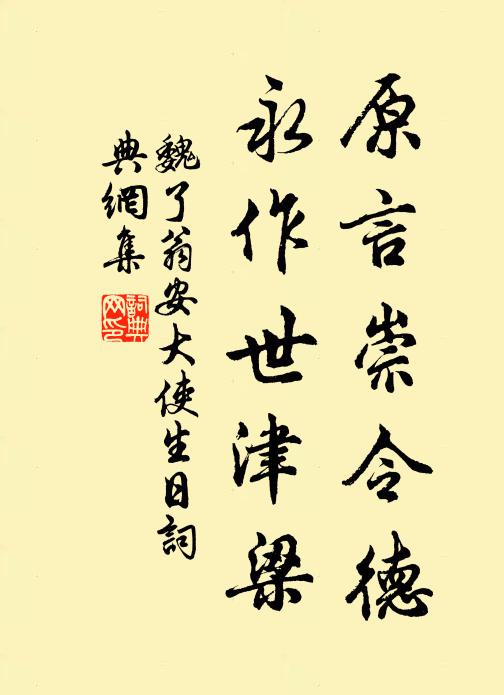 原言崇令德
永作世津梁
魏了翁安大使生日詞
典網集
詞典网印